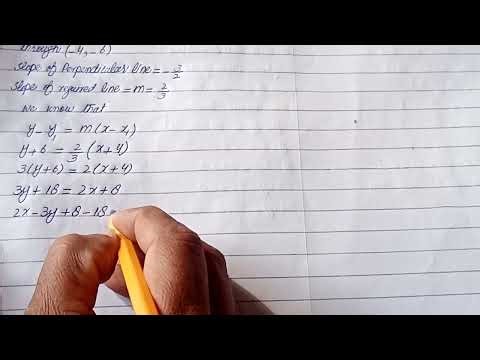 through (-4, -6)
Slope of Perpendicular line = -3/2
Slope of required line = m = 2/3
We know that
y - y₁ = m(x - x₁)
y + 6 = 2/3 (x + 4)
3(y + 6) = 2(x + 4)
3y + 18 = 2x + 8
2x - 3y + 8 - 18 =